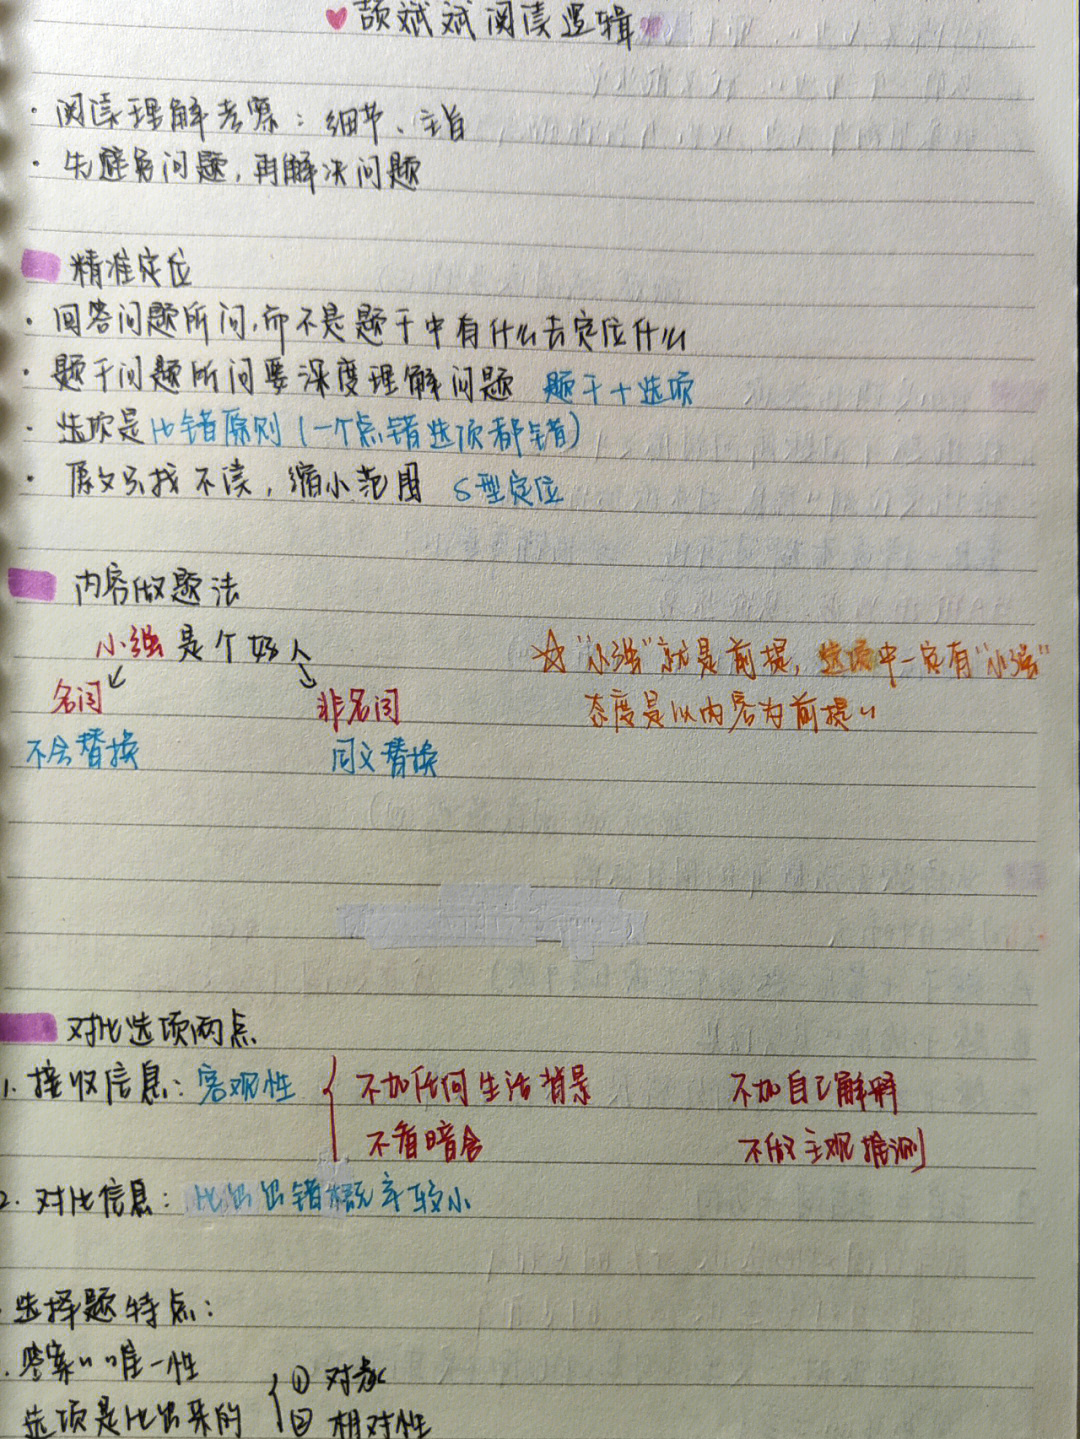 颉斌斌阅读逻辑
· 阅读理解考察：细节、主旨
· 先避免问题，再解决问题
精准定位
· 回答问题所问，而不是题干中有什么去定位什么
· 题干问题所问要深度理解问题 题干+选项
· 选项是比错原则（一个点错选项都错）
· 原文只找不读，缩小范围 S型定位
内容做题法
小强是个好人
☆"小强"就是前提，选项中一定有"小强"
名词 非名词
态度是以内容为前提"
不会替换 同义替换
对比选项两点
1. 接收信息：客观性 { 不加任何生活背景 不加自己解释
不看暗含 不做主观推测
2. 对比信息：比出出错概率较小
· 选择题特点：
· 答案"唯一性
选项是比出来的 { ① 对象
② 相对性